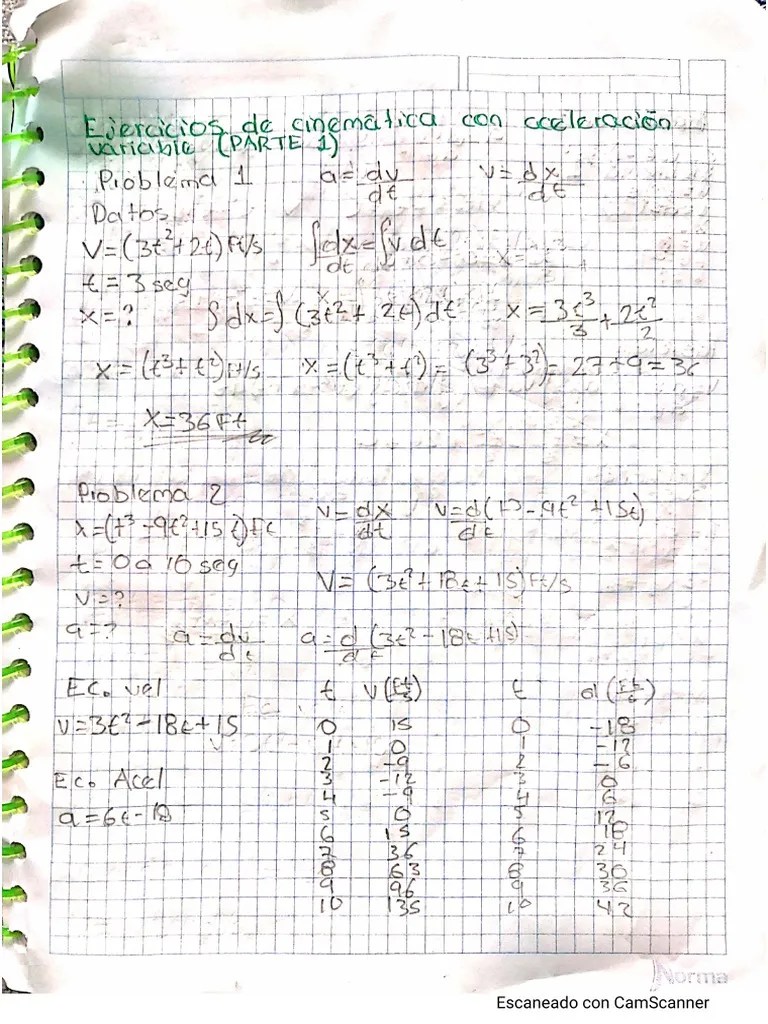 Ejercicios de cinemática con aceleración
variable (PARTE 1)
Problema 1 a = dv/dt v = dx/dt
Datos
V=(3t²+2t)Ft/s ∫dx/dt=∫v dt
t = 3 seg
x = ? ∫dx=∫(3t²+ 2t)dt x = 3t³/3 + 2t²/2
x = (t³+t²)Ft/s x = (t³+t²) = (3³+3²)= 27+9=36
x=36Ft
Problema 2
x=(t³-9t²+15t)Ft v=dx/dt v=d/dt(t³-9t²+15t)
t=0a10seg
v=? V= (3t²+18t+15)Ft/s
a=? a=dv/dt a=d/dt(3t²-18t+15)
Ec. vel t v(Ft/s) t a(
v=3t²-18t+15 0 15 0 -18
1 0 1 -12
2 -9 2 -6
Ec. Acel 3 -12 3 0
4 -9 4 6
a=6t-18 5 0 5 12
6 15 6 18
7 36 7 24
8 63 8 30
9 96 9 36
10 135 10 42
Norma
Escaneado con CamScanner